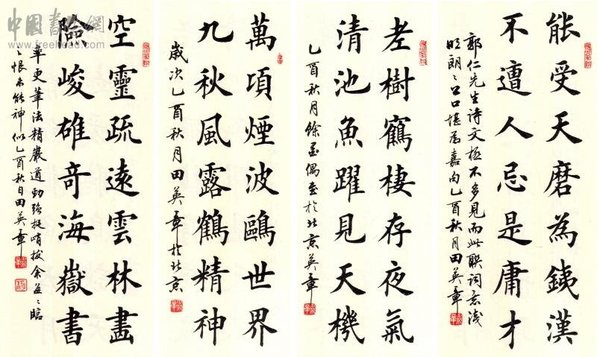 能受天磨為銕漢
不遭人忌是庸才
郭仁先生诗文極不多見而此联词意浅
明朗〻口口堪為嘉尚乙酉秋月田英章
老樹鶴棲存夜氣
清池魚躍見天機
乙酉秋月餘墨偶至於北京英章
萬頃煙波鷗世界
九秋風露鶴精神
歲次乙酉秋月田英章於北京
空靈疏遠雲林畫
險峻雄奇海嶽書
率更筆法精嚴遒勁強挺峭拔余益〻臨
〻恨不能神似乙酉秋日田英章